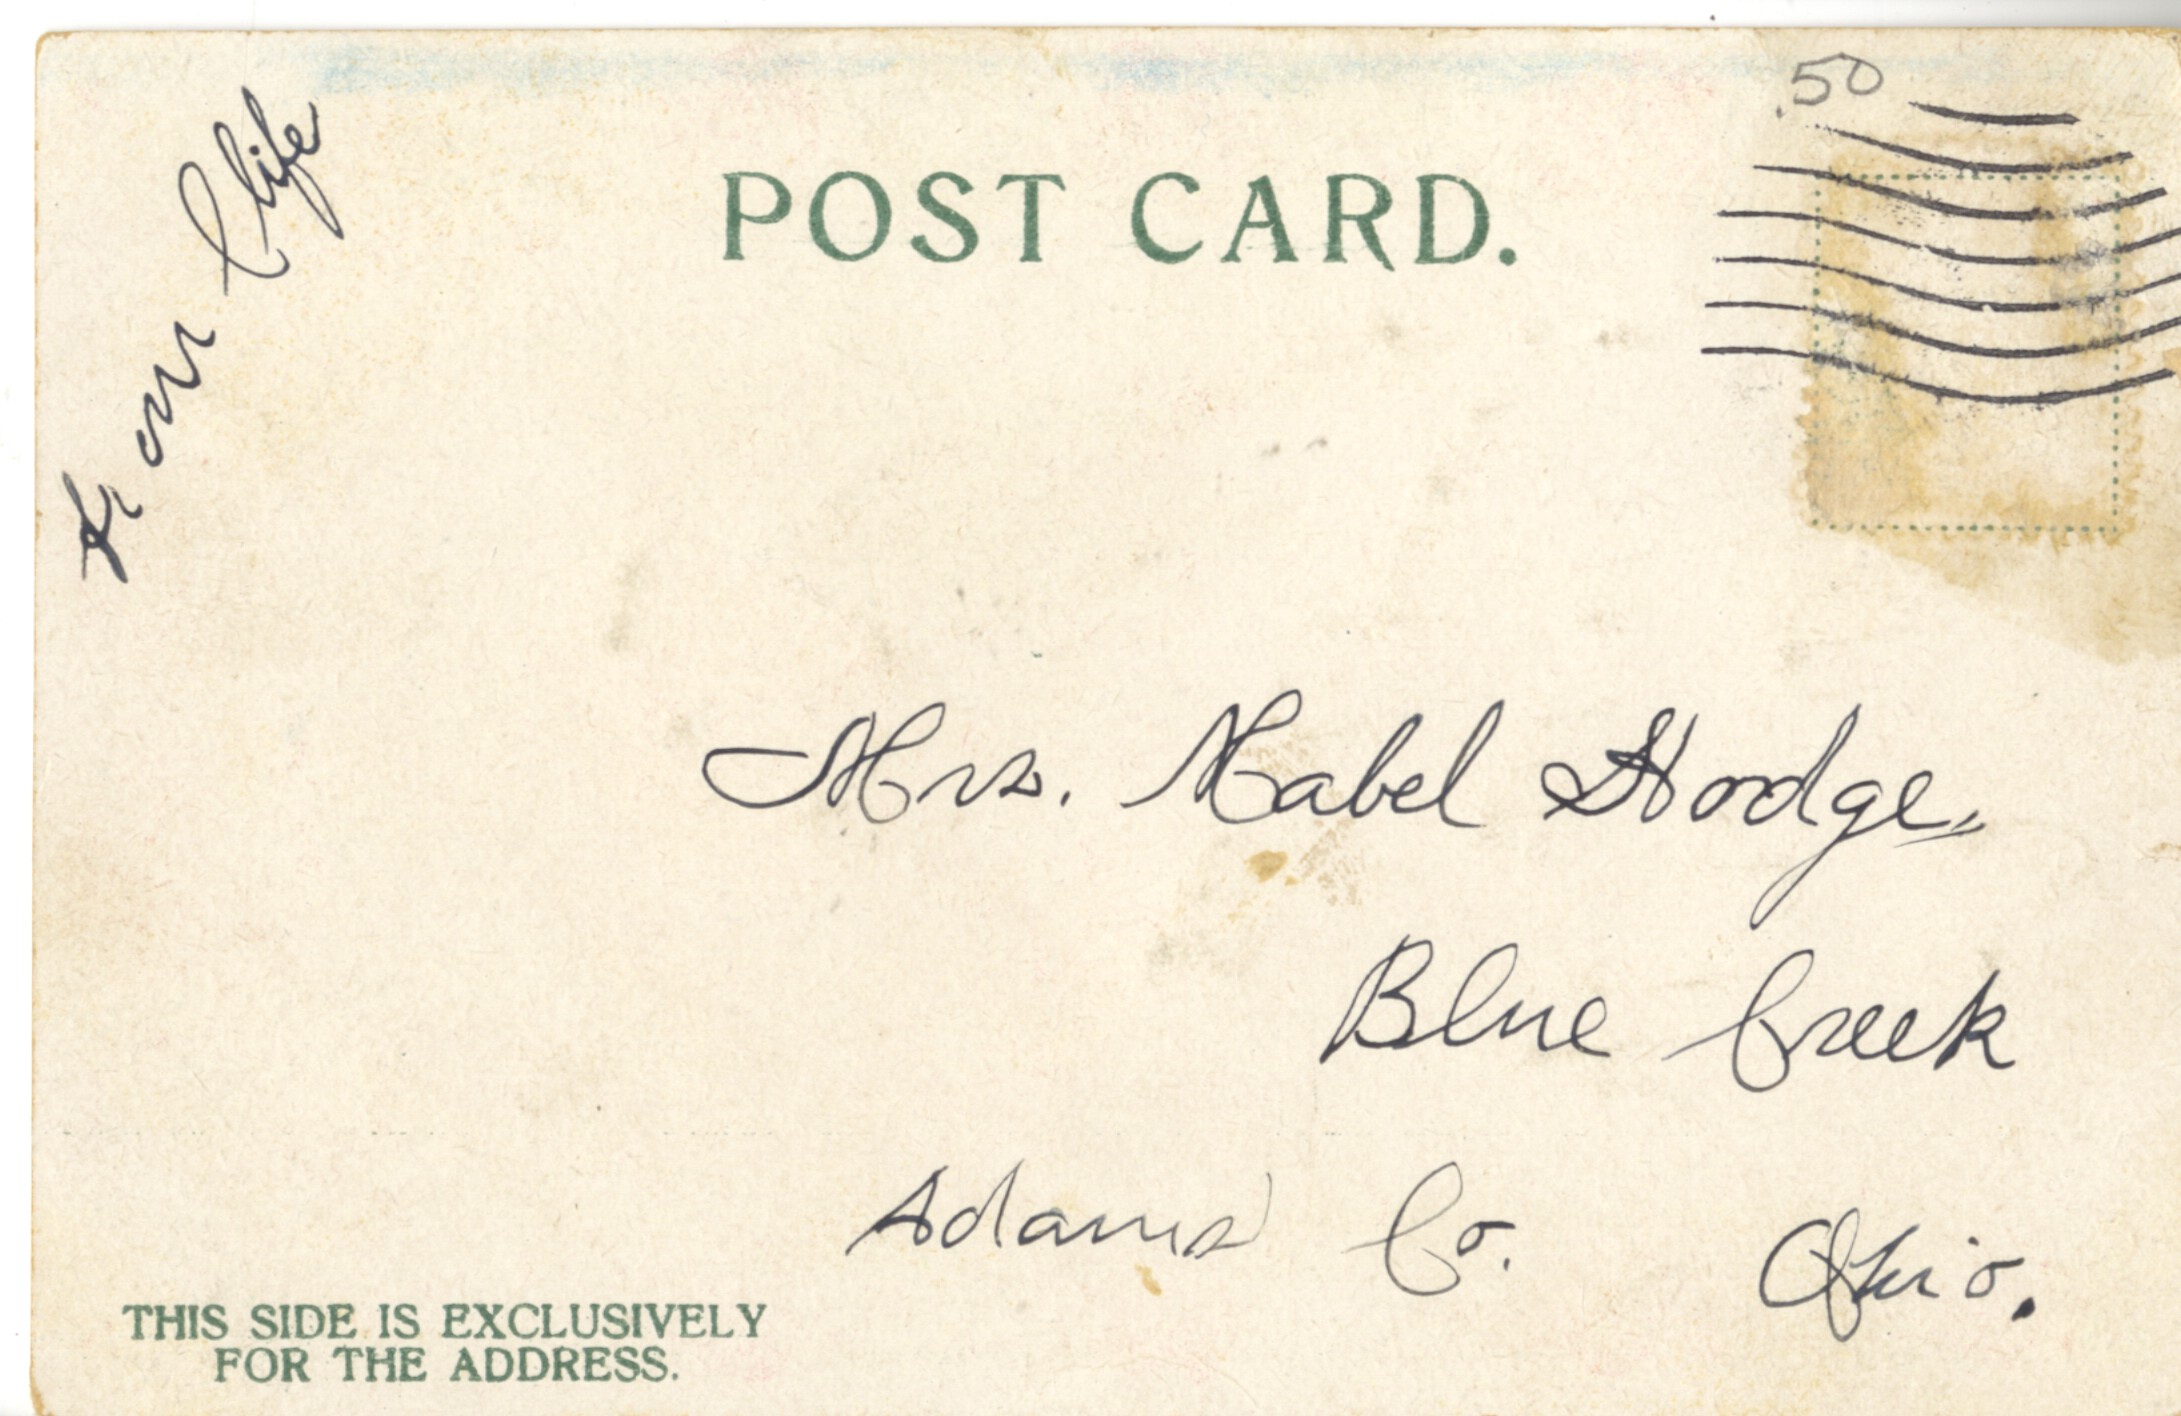 .50
From Clife
POST CARD.
Mrs. Mabel Hodge,
Blue Creek
Adams Co. Ohio.
THIS SIDE IS EXCLUSIVELY
FOR THE ADDRESS.